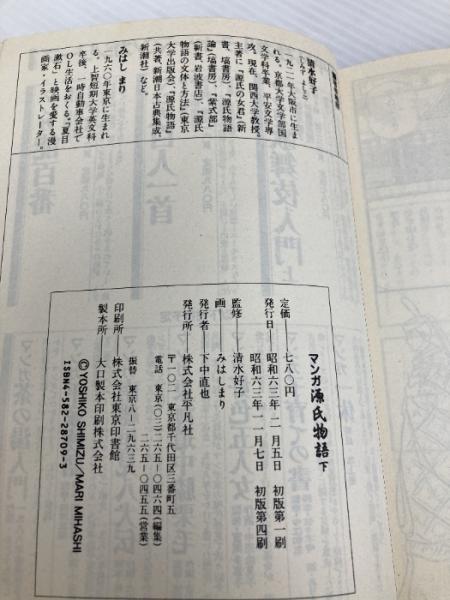 清水好子
しみず よしこ
一九二一年大阪市に生まれる。京都大学文学部国文学科卒業。平安文学専攻。現在、関西大学教授。主著に『源氏の女君』(新書、塙書房)、『源氏物語論』(塙書房)、『紫式部』(新書、岩波書店)、『源氏物語の文体と方法』(東京大学出版会)、『源氏物語』(共著、新潮日本古典集成、新潮社)など。
みはし まり
一九六〇年東京に生まれる。上智短期大学英文科卒後、一時自動車会社でOL生活をおくる。「夏目漱石」と映画を愛する漫画家・イラストレーター。
マンガ源氏物語 下
定価――七八〇円
発行日――昭和六三年一一月五日 初版第一刷
昭和六三年一一月七日 初版第四刷
監修――清水好子
画――みはしまり
発行者――下中直也
発行所――株式会社平凡社
〒一〇二 東京都千代田区三番町五
電話 東京(〇三)二六五―〇四六四(編集)
二六五―〇四五五(営業)
振替 東京八―二九六三九
印刷所――株式会社東京印書館
製本所――大口製本印刷株式会社
©YOSHIKO SHIMIZU/MARI MIHASHI
ISBN4-582-28709-3